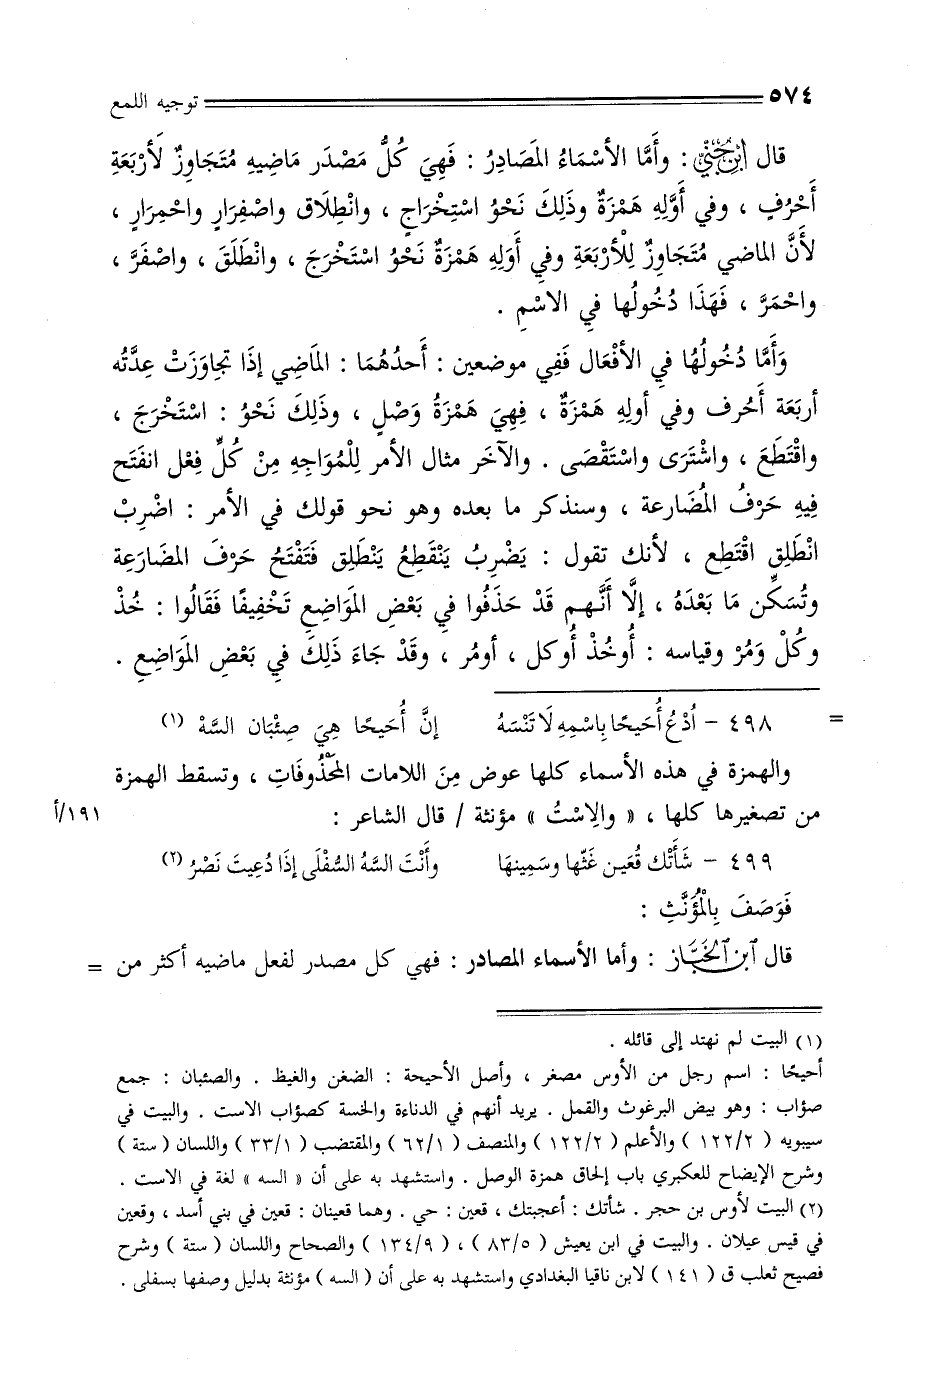 ٥٧٤ توجيه اللمع
قال ابن جني : وأَمَّا الأسْمَاءُ المَصَادِرُ : فَهِيَ كُلُّ مَصْدَر مَاضِيهِ مُتَجَاوِزٌ لأَرْبَعَةِ
أَحْرُفِ ، وفي أَوَّلِهِ هَمْزَةٌ وذَلِكَ نَحْوُ اسْتِخْرَاجِ ، وانْطِلَاق واصْفِرَارِ واحْمِرَارِ ،
لأَنَّ الماضي مُتَجَاوِزٌ لِلْأَرْبَعَةِ وفي أَوَلِهِ هَمْزَةٌ نَحْوُ اسْتَخْرَجَ ، وانْطَلَقَ ، واصْفَرَّ ،
واحْمَرَّ ، فَهَذَا دُخُولُها فِي الاسْمِ .
وَأَمَّا دُخُولُهُا فِي الأفْعَال فَفِي موضعين : أَحدُهُمَا : المَاضِي إذَا تجاوَزَتْ عِدَّتُه
أربَعَة أَحُرف وفي أولِهِ هَمْزَةٌ ، فِهِيَ هَمْزَةُ وَصْلٍ ، وذَلِكَ نَحْوُ : اسْتَخْرَجَ ،
واقْتَطَعَ ، واشْتَرَى واسْتَقْصَى . والآخَر مثال الأمر لِلْمُوَاجِهِ مِنْ كُلِّ فِعْل انفَتَح
فِيهِ حَرْفُ المُضَارعة ، وسنذكر ما بعده وهو نحو قولك في الأمر : اضْرِبْ
انْطَلِق اقْتَطِع ، لأنك تقول : يَضْرِبُ يَنْقَطِعُ يَنْطَلِق فَتَفْتَحُ حَرْفَ المضَارَعِة
وتُسَكِّن مَا بَعْدَهُ ، إلَّا أَنَّهم قَدْ حَذَفُوا فِي بَعْضِ المَوَاضِعِ تَخْفِيفًا فَقَالُوا : خُذْ
وكُلْ وَمُرْ وقياسه : أُوخُذْ أُوكل ، أومُر ، وقَدْ جَاءَ ذَلِكَ فِي بَعْضِ المَوَاضِعِ .
= ٤٩٨ - اُدْعُ أُحَيحًا بِاسْمِهِ لَا تَنْسَهُ إنَّ أُحَيحًا هِيَ صِئْبَان السَّهْ (١)
والهمزة في هذه الأسماء كلها عوض مِنَ اللامات المَحْذُوفَاتِ ، وتسقط الهمزة
من تصغيرها كلها ، « والِاسْتُ » مؤنثة / قال الشاعر : ١٩١/أ
٤٩٩ - شَأَتْك قُعَين غَثّها وسَمِينهَا وأَنْتَ السَّهُ السُّفْلَى إذَا دُعِيتَ نَصْرُ (٢)
فَوَصَفَ بِالْمُؤَنَّثِ :
قال ابن الخباز : وأما الأسماء المصادر : فهي كل مصدر لفعل ماضيه أكثر من =
(١) البيت لم نهتد إلى قائله .
أحيحًا : اسم رجل من الأوس مصغر ، وأصل الأحيحة : الضغن والغيظ . والصئبان : جمع
صؤاب : وهو بيض البرغوث والقمل . يريد أنهم في الدناءة والخسة كصؤاب الاست . والبيت في
سيبويه ( ١٢٢/٢ ) والأعلم ( ١٢٢/٢ ) والمنصف ( ٦٢/١ ) والمقتضب ( ٣٣/١ ) واللسان ( ستة )
وشرح الإيضاح للعكبري باب إلحاق همزة الوصل . واستشهد به على أن « السه » لغة في الاست .
(٢) البيت لأوس بن حجر . شأتك : أعجبتك ، قعين : حي . وهما قعينان : قعين في بني أسد ، وقعين
في قيس عيلان . والبيت في ابن يعيش ( ٨٣/٥ ) ، ( ١٣٤/٩ ) والصحاح واللسان ( ستة ) وشرح
فصيح ثعلب ق ( ١٤١ ) لابن ناقيا البغدادي واستشهد به على أن ( السه ) مؤنثة بدليل وصفها بسفلى .